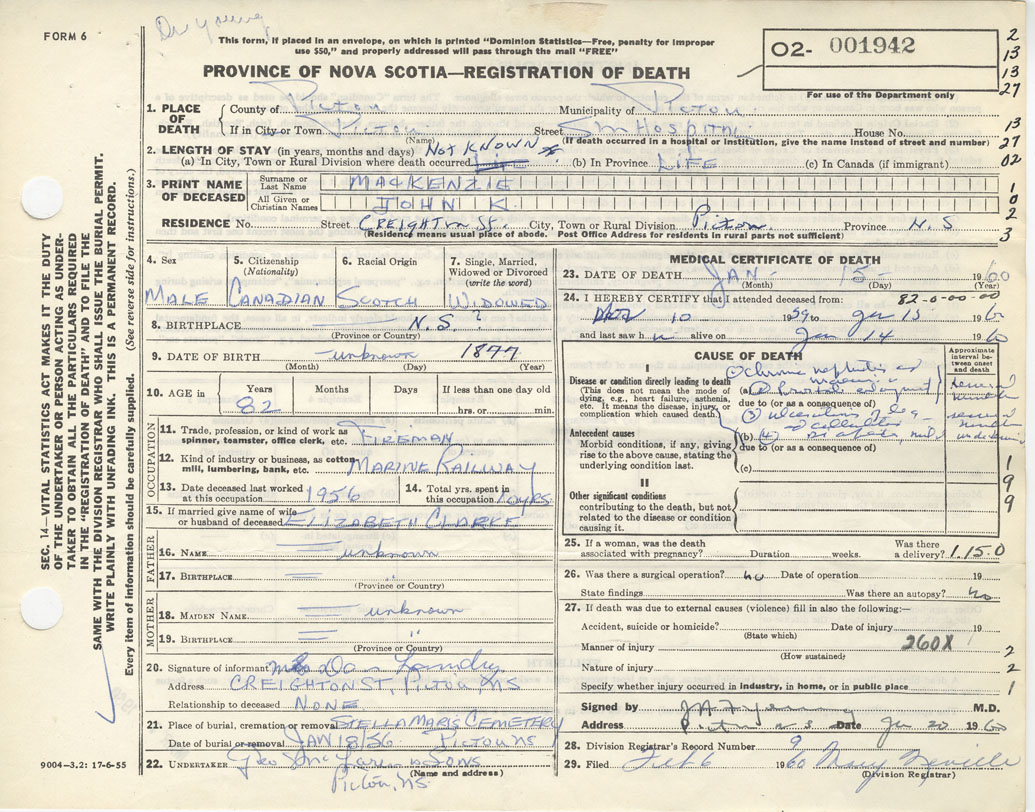 Dr Young
FORM 6
This form, if placed in an envelope, on which is printed "Dominion Statistics—Free, penalty for improper
use $50," and properly addressed will pass through the mail "FREE"
PROVINCE OF NOVA SCOTIA—REGISTRATION OF DEATH
O2- 001942
For use of the Department only
2
13
13
27
13
27
02
1
0
2
3
1. PLACE OF DEATH
County of Pictou Municipality of Pictou
If in City or Town Pictou Street S M Hospital House No.
(Name) (If death occurred in a hospital or institution, give the name instead of street and number)
2. LENGTH OF STAY (in years, months and days) NOT KNOWN
(a) In City, Town or Rural Division where death occurred Life (b) In Province LIFE (c) In Canada (if immigrant)
3. PRINT NAME OF DECEASED
Surname or Last Name MACKENZIE
All Given or Christian Names JOHN K.
RESIDENCE No. Street CREIGHTON St. City, Town or Rural Division Pictou. Province N.S
(Residence means usual place of abode. Post Office Address for residents in rural parts not sufficient)
4. Sex
MALE
5. Citizenship (Nationality)
CANADIAN
6. Racial Origin
SCOTCH
7. Single, Married, Widowed or Divorced (write the word)
WIDOWED
8. BIRTHPLACE N.S. ?
(Province or Country)
9. DATE OF BIRTH unknown 1877
(Month) (Day) (Year)
10. AGE in Years Months Days If less than one day old
82 hrs. or min.
OCCUPATION
11. Trade, profession, or kind of work as spinner, teamster, office clerk, etc. FIREMAN
12. Kind of industry or business, as cotton mill, lumbering, bank, etc. MARINE RAILWAY
13. Date deceased last worked at this occupation 1956
14. Total yrs. spent in this occupation 10 yrs.
15. If married give name of wife or husband of deceased ELIZABETH CLARKE
FATHER
16. NAME unknown
17. BIRTHPLACE "
(Province or Country)
MOTHER
18. MAIDEN NAME unknown
19. BIRTHPLACE "
(Province or Country)
20. Signature of informant Mrs Dan Landry
Address CREIGHTON ST. Pictou NS
Relationship to deceased NONE.
21. Place of burial, cremation or removal STELLA MARIS CEMETERY
Date of burial or removal JAN 18/56 Pictou NS
22. UNDERTAKER Geo McLaren & Sons
(Name and address)
Pictou, NS.
9004—3.2: 17-6-55
SEC. 14—VITAL STATISTICS ACT MAKES IT THE DUTY
OF THE UNDERTAKER OR PERSON ACTING AS UNDER-
TAKER TO OBTAIN ALL THE PARTICULARS REQUIRED
IN THE "REGISTRATION OF DEATH" AND TO FILE THE
SAME WITH THE DIVISION REGISTRAR WHO SHALL ISSUE THE BURIAL PERMIT.
WRITE PLAINLY WITH UNFADING INK. THIS IS A PERMANENT RECORD.
Every item of information should be carefully supplied. (See reverse side for instructions.)
MEDICAL CERTIFICATE OF DEATH
23. DATE OF DEATH JAN - 15 - 1960
(Month) (Day) (Year)
24. I HEREBY CERTIFY that I attended deceased from: 82-0-00-00
10 1959 to Jan 15 1960
and last saw h im alive on Jan 14 1960
CAUSE OF DEATH
Approximate interval between onset and death
I
Disease or condition directly leading to death
(This does not mean the mode of dying, e.g., heart failure, asthenia, etc. It means the disease, injury, or complication which caused death.)
(1) Chronic nephritis and uraemia
(a) (2)
due to (or as a consequence of)
(3) Ulceration of leg
Antecedent causes
Morbid conditions, if any, giving rise to the above cause, stating the underlying condition last.
(b) (4) Diabetes mell
due to (or as a consequence of)
(c)
several months
several months
unknown
1
9
9
II
Other significant conditions contributing to the death, but not related to the disease or condition causing it.
25. If a woman, was the death associated with pregnancy? Duration weeks. Was there a delivery? 1.15.0
26. Was there a surgical operation? no Date of operation 19
State findings Was there an autopsy? No
27. If death was due to external causes (violence) fill in also the following:—
Accident, suicide or homicide? Date of injury 19
(State which)
Manner of injury 260X
(How sustained)
Nature of injury
Specify whether injury occurred in industry, in home, or in public place
2
2
1
Signed by Young M.D.
Address Pictou N S Date Jan 20 1960
28. Division Registrar's Record Number 9
29. Filed Feb 6 1960 Mary Neville
(Division Registrar)